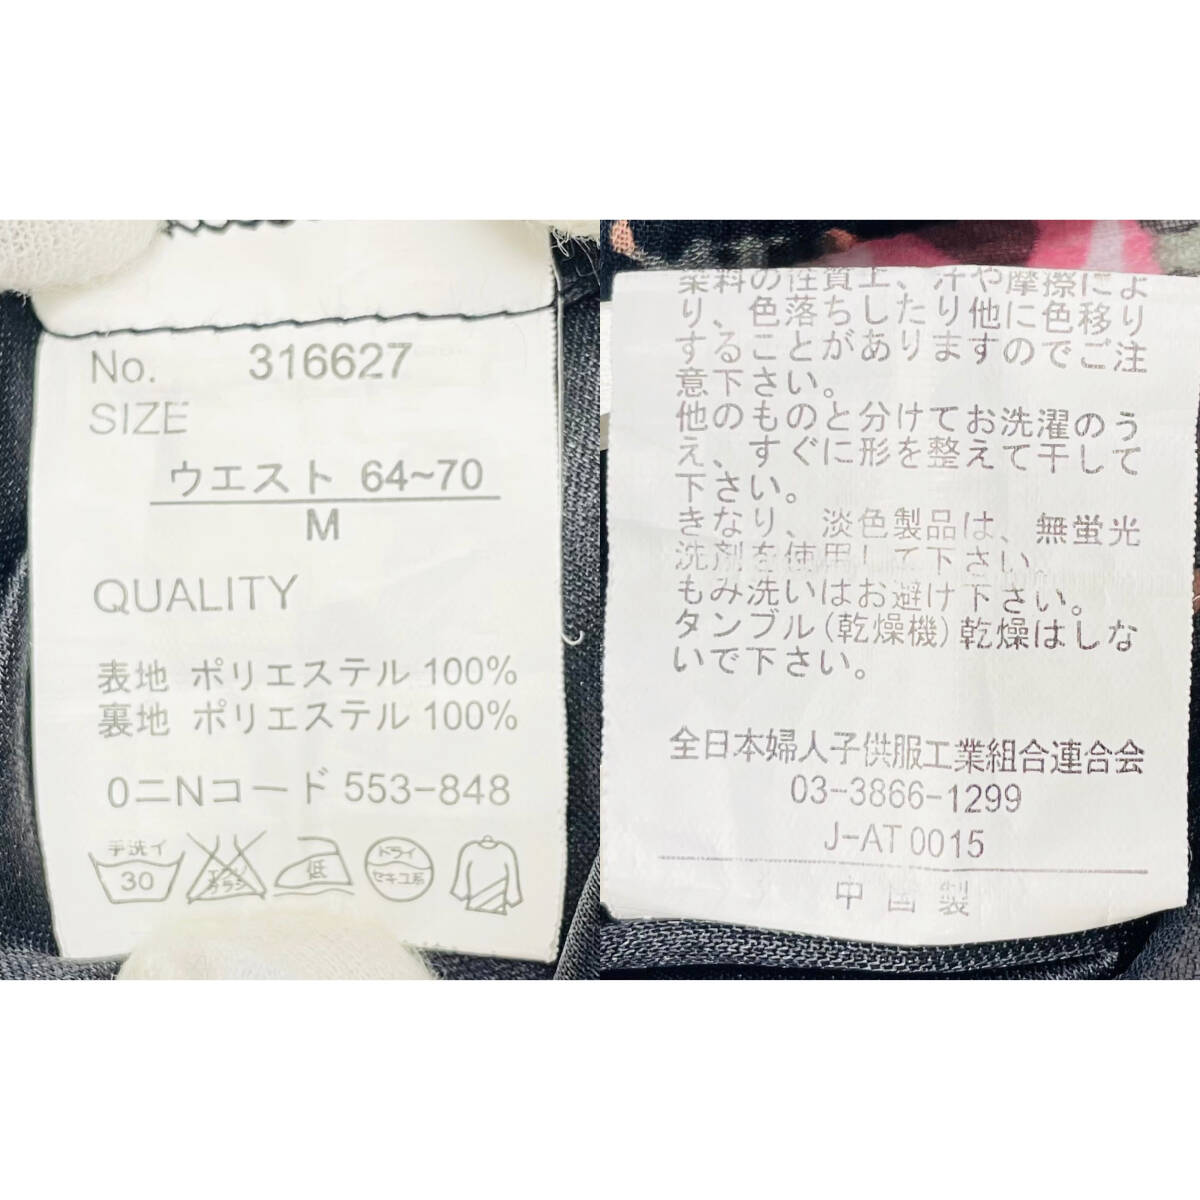 No. 316627
SIZE
ウエスト 64~70
M
QUALITY
表地 ポリエステル 100%
裏地 ポリエステル 100%
0ニNコード 553-848
手洗イ
30
エンソ
サラシ
低
ドライ
セキユ系
染料の性質上、汗や摩擦によ
り、色落ちしたり他に色移り
することがありますのでご注
意下さい。
他のものと分けてお洗濯のう
え、すぐに形を整えて干して
下さい。
きなり、淡色製品は、無蛍光
洗剤を使用して下さい。
もみ洗いはお避け下さい。
タンブル(乾燥機)乾燥はしな
いで下さい。
全日本婦人子供服工業組合連合会
03-3866-1299
J-AT0015
中国製